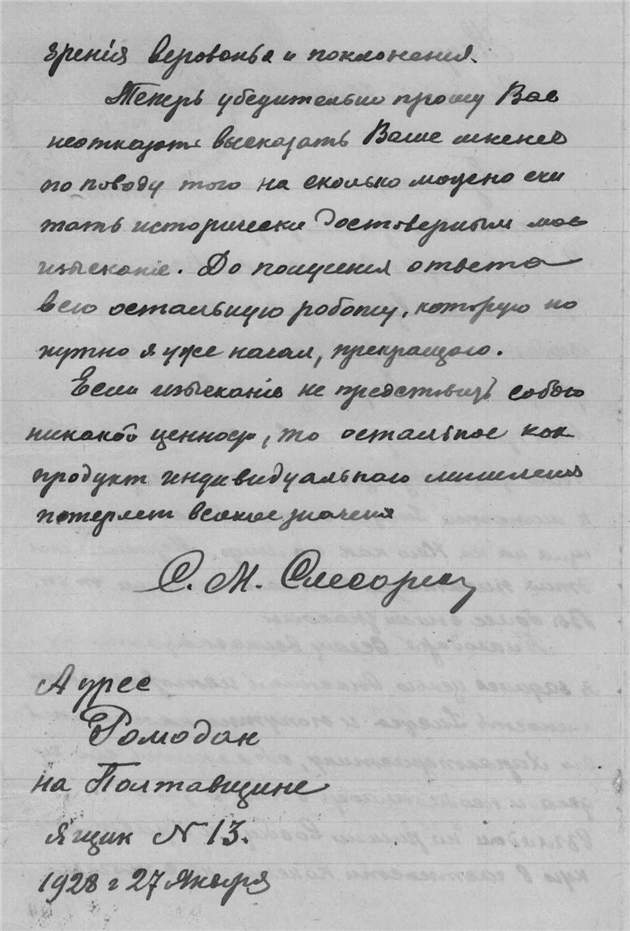 зрения верованья и поклонения.
Теперь убедительно прошу Вас
неотказать высказать Ваше мнение
по поводу того на сколько можно счи
тать исторически достоверным мое
изыскание. До получения ответа
всю остальную работу, которую по
нужно я уже начал, прекращаю.
Если изыскание не представит собою
никакой ценност, то остальное как
продукт индивидуального мышления
потеряет всякое значения
С. М.
Адрес
Ромодан
на Полтавщине
Ящик N 13.
1928 г 27 Января